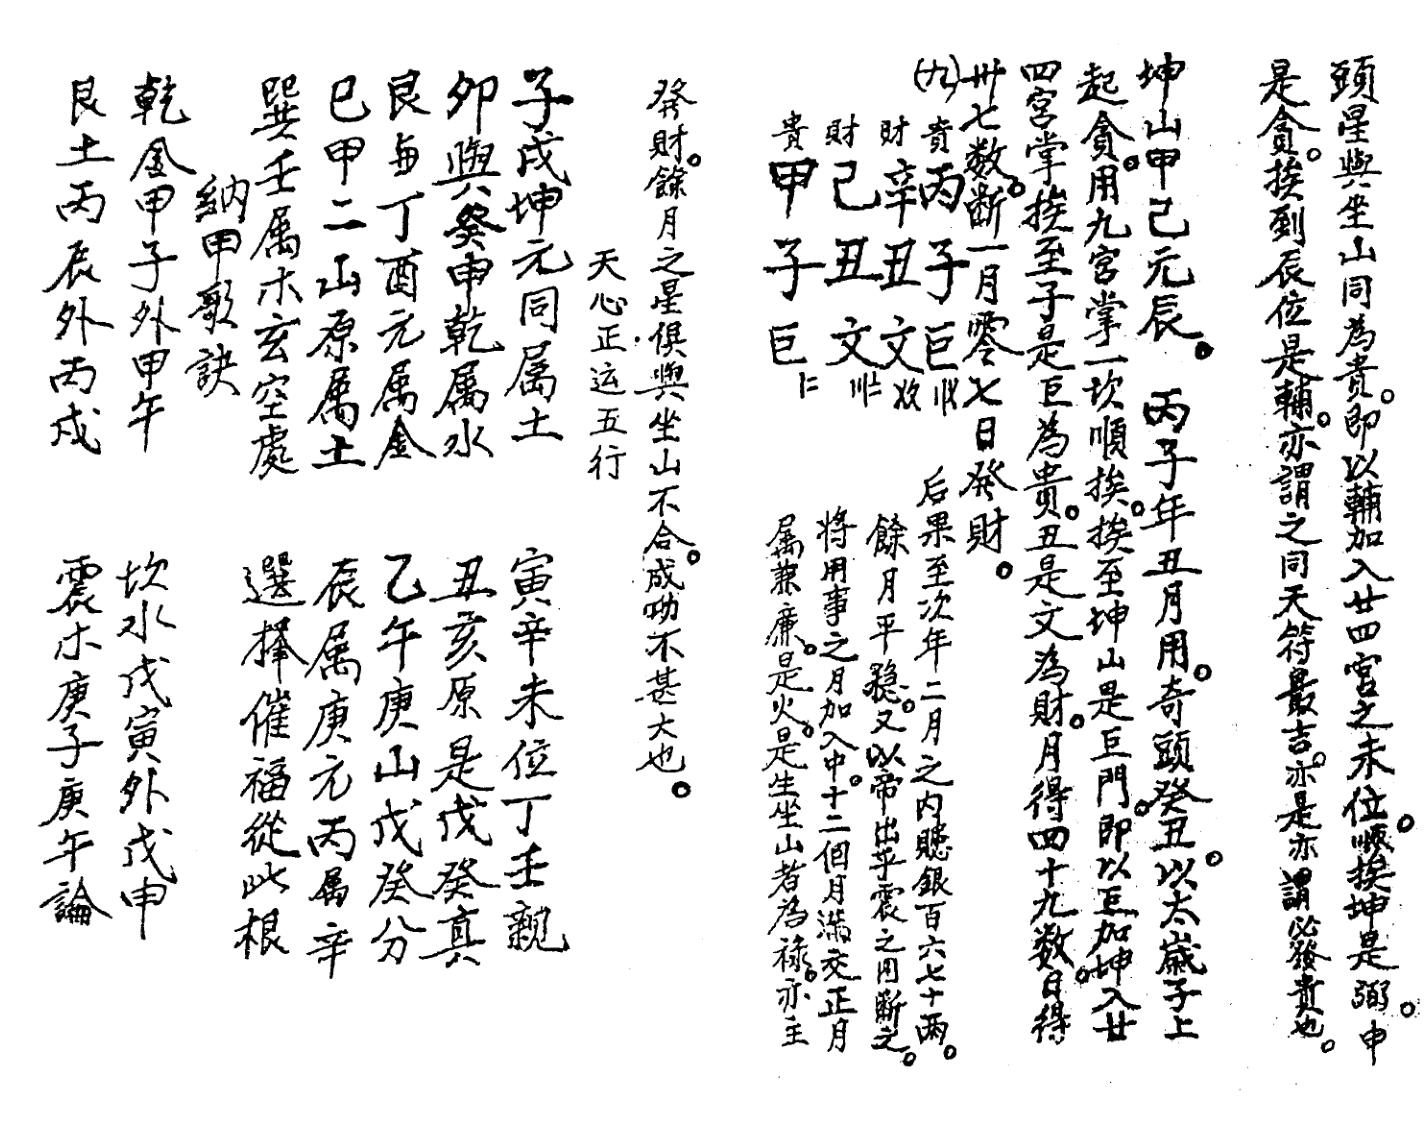 頭星與坐山同為貴。即以輔加入廿四宮之未位。順挨坤是弼。申
是貪。挨到辰位是輔。亦謂之同天符最吉。亦是亦謂必發貴也。
坤山甲己元辰。 丙子年丑月用。奇頭癸丑。以太歲子上
起貪。用九宮掌一坎順挨。挨至坤山是巨門。即以巨加坤入廿
四宮掌挨至子是巨為貴。丑是文為財。月得四十九数。日得
卅七数。断一月零七日發財。
(九)
貴 丙子巨 〢〤
財 辛丑文
財 己丑文
貴 甲子巨
后果至次年二月之内賍銀百六七十兩。
餘月平穏。又以帝出乎震之用断之。
將用事之月加入中。十二個月滿交正月
属蕪廉。是火。是生坐山者為祿。亦主
發財。餘月之星俱與坐山不合。成功不甚大也。
天心正运五行
子戌坤元同属土 寅辛未位丁壬親
卯與癸申乾属水 丑亥原是戊癸真
艮每丁酉元属金 乙午庚山戊癸分
巳甲二山原属土 辰属庚元丙属辛
巽壬属木玄空處 選擇催福從此根
納甲歌訣
乾金甲子外甲午 坎水戊寅外戊申
艮土丙辰外丙戍 震木庚子庚午論